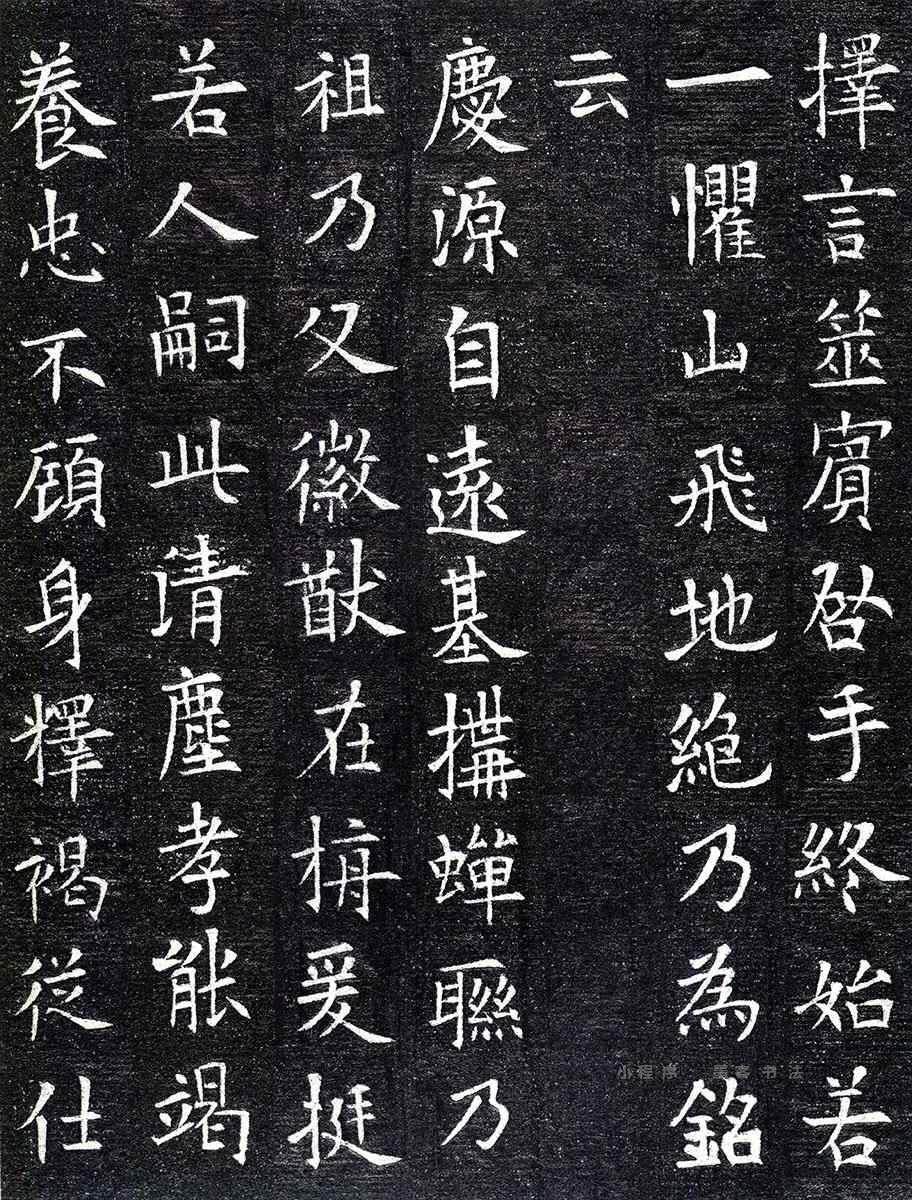 擇言筮賓啓手終始若
一懼山飛地絶乃為銘
云
慶源自遠基搆蟬聯乃
祖乃父徽猷在旃爰挺
若人嗣此清塵孝能竭
養忠不顧身釋褐從仕
小程序 书法